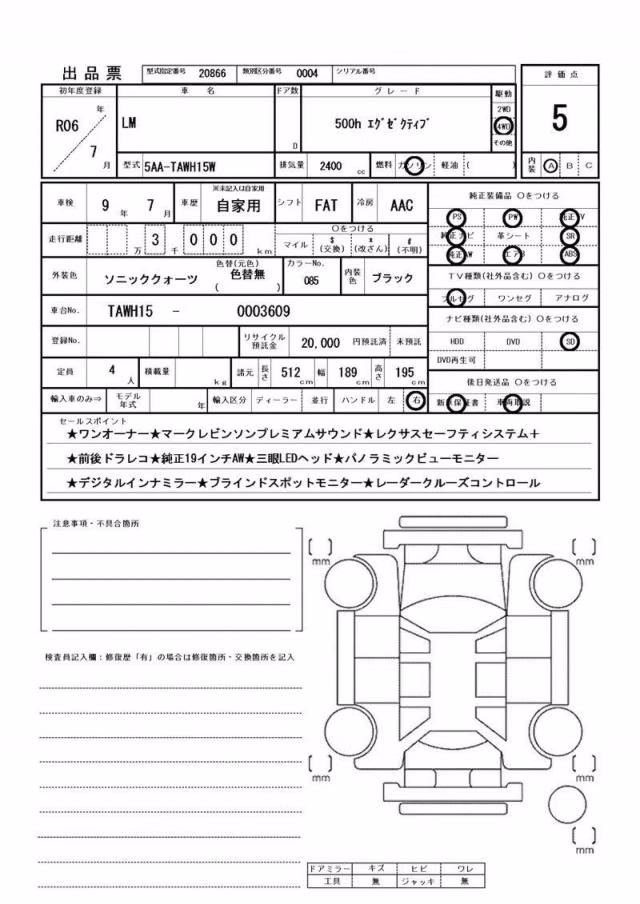 出品票 型式指定番号 20866 類別区分番号 0004 シリアル番号
評価点
初年度登録 車名 ドア数 グレード 駆動
R06 年 LM 500h ｴｸﾞｾﾞｸﾃｨﾌﾞ 2WD
4WD
7 月 D その他
5
型式 5AA-TAWH15W 排気量 2400 cc 燃料 ガソリン 軽油 ( ) 内装 A B C
車検 9 年 7 月 車歴 ※未記入は自家用 自家用 シフト FAT 冷房 AAC
純正装備品 〇をつける
PS PW 純正TV
走行距離 万 3 千 0 0 0 km 〇をつける
マイル $(交換) *(改ざん) #(不明)
純正ナビ 革シート SR
純正AW エアB ABS
外装色 ソニッククォーツ 色替(元色) 色替無 ( ) カラーNo. 085 内装色 ブラック
TV種類(社外品含む) 〇をつける
フルセグ ワンセグ アナログ
車台No. TAWH15 - 0003609
ナビ種類(社外品含む) 〇をつける
登録No. リサイクル預託金 20,000 円預託済 未預託
HDD DVD SD
DVD再生可
定員 4 人 積載量 kg 諸元 長さ 512 cm 幅 189 cm 高さ 195 cm
後日発送品 〇をつける
輸入車のみ⇒ モデル年式 年 輸入区分 ディーラー 並行 ハンドル 左 右
新車保証書 車両取説
セールスポイント
★ワンオーナー★マークレビンソンプレミアムサウンド★レクサスセーフティシステム＋
★前後ドラレコ★純正19インチAW★三眼LEDヘッド★パノラミックビューモニター
★デジタルインナミラー★ブラインドスポットモニター★レーダークルーズコントロール
注意事項・不具合箇所
[ ] mm [ ] mm
検査員記入欄：修復歴「有」の場合は修復箇所・交換箇所を記入
[ ] mm [ ] mm
[ ] mm
ドアミラー キズ ヒビ ワレ
工具 無 ジャッキ 無